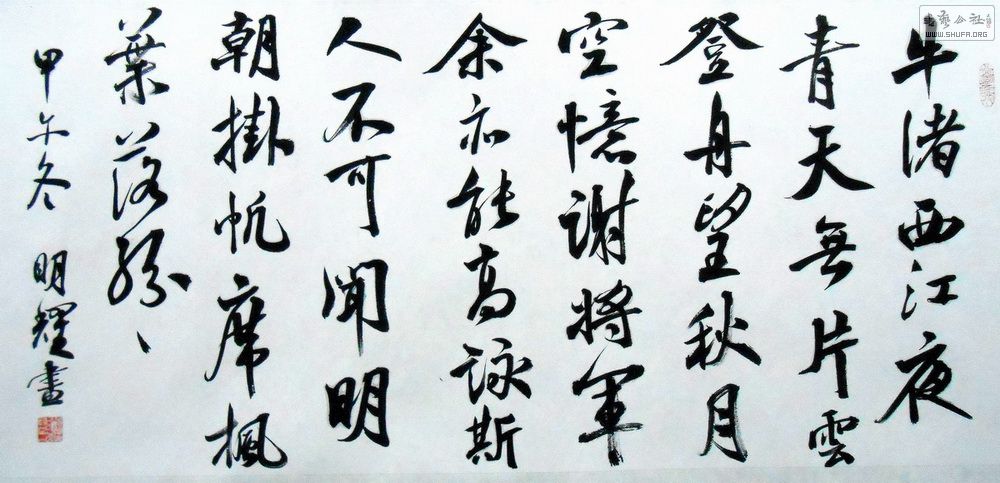 牛渚西江夜
青天無片雲
登舟望秋月
空憶謝將軍
余亦能高詠斯
人不可聞明
朝掛帆席楓
葉落紛〻
甲午冬 明耀書
書藝公社
WWW.SHUFA.ORG